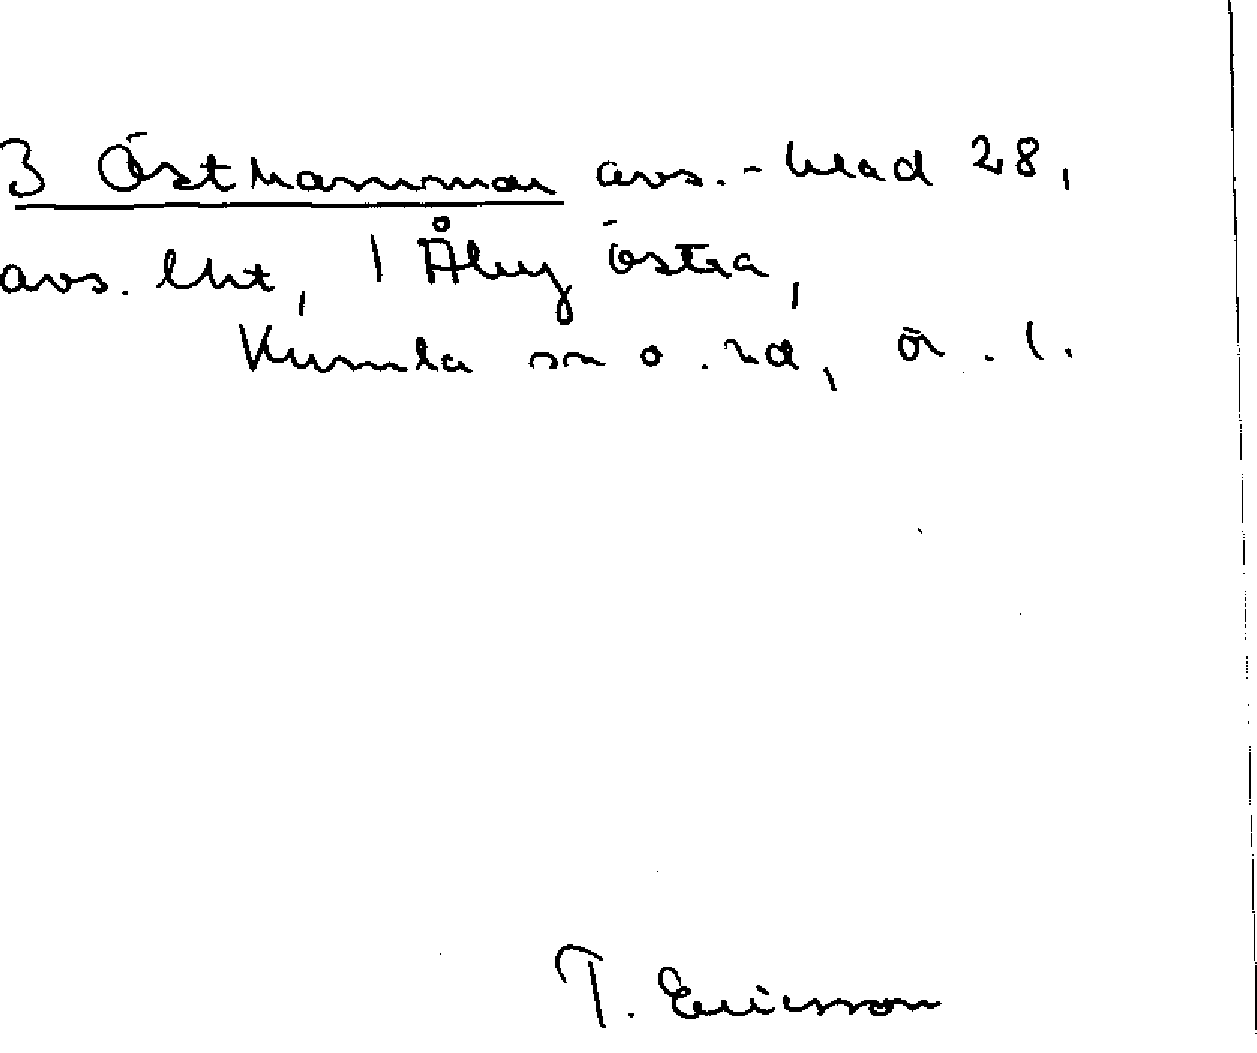 3 Östhammar avs.-blad 28,
avs. lht, 1 Åby östra,
Kumla sn o. hd, ör. l.
T. Ericsson